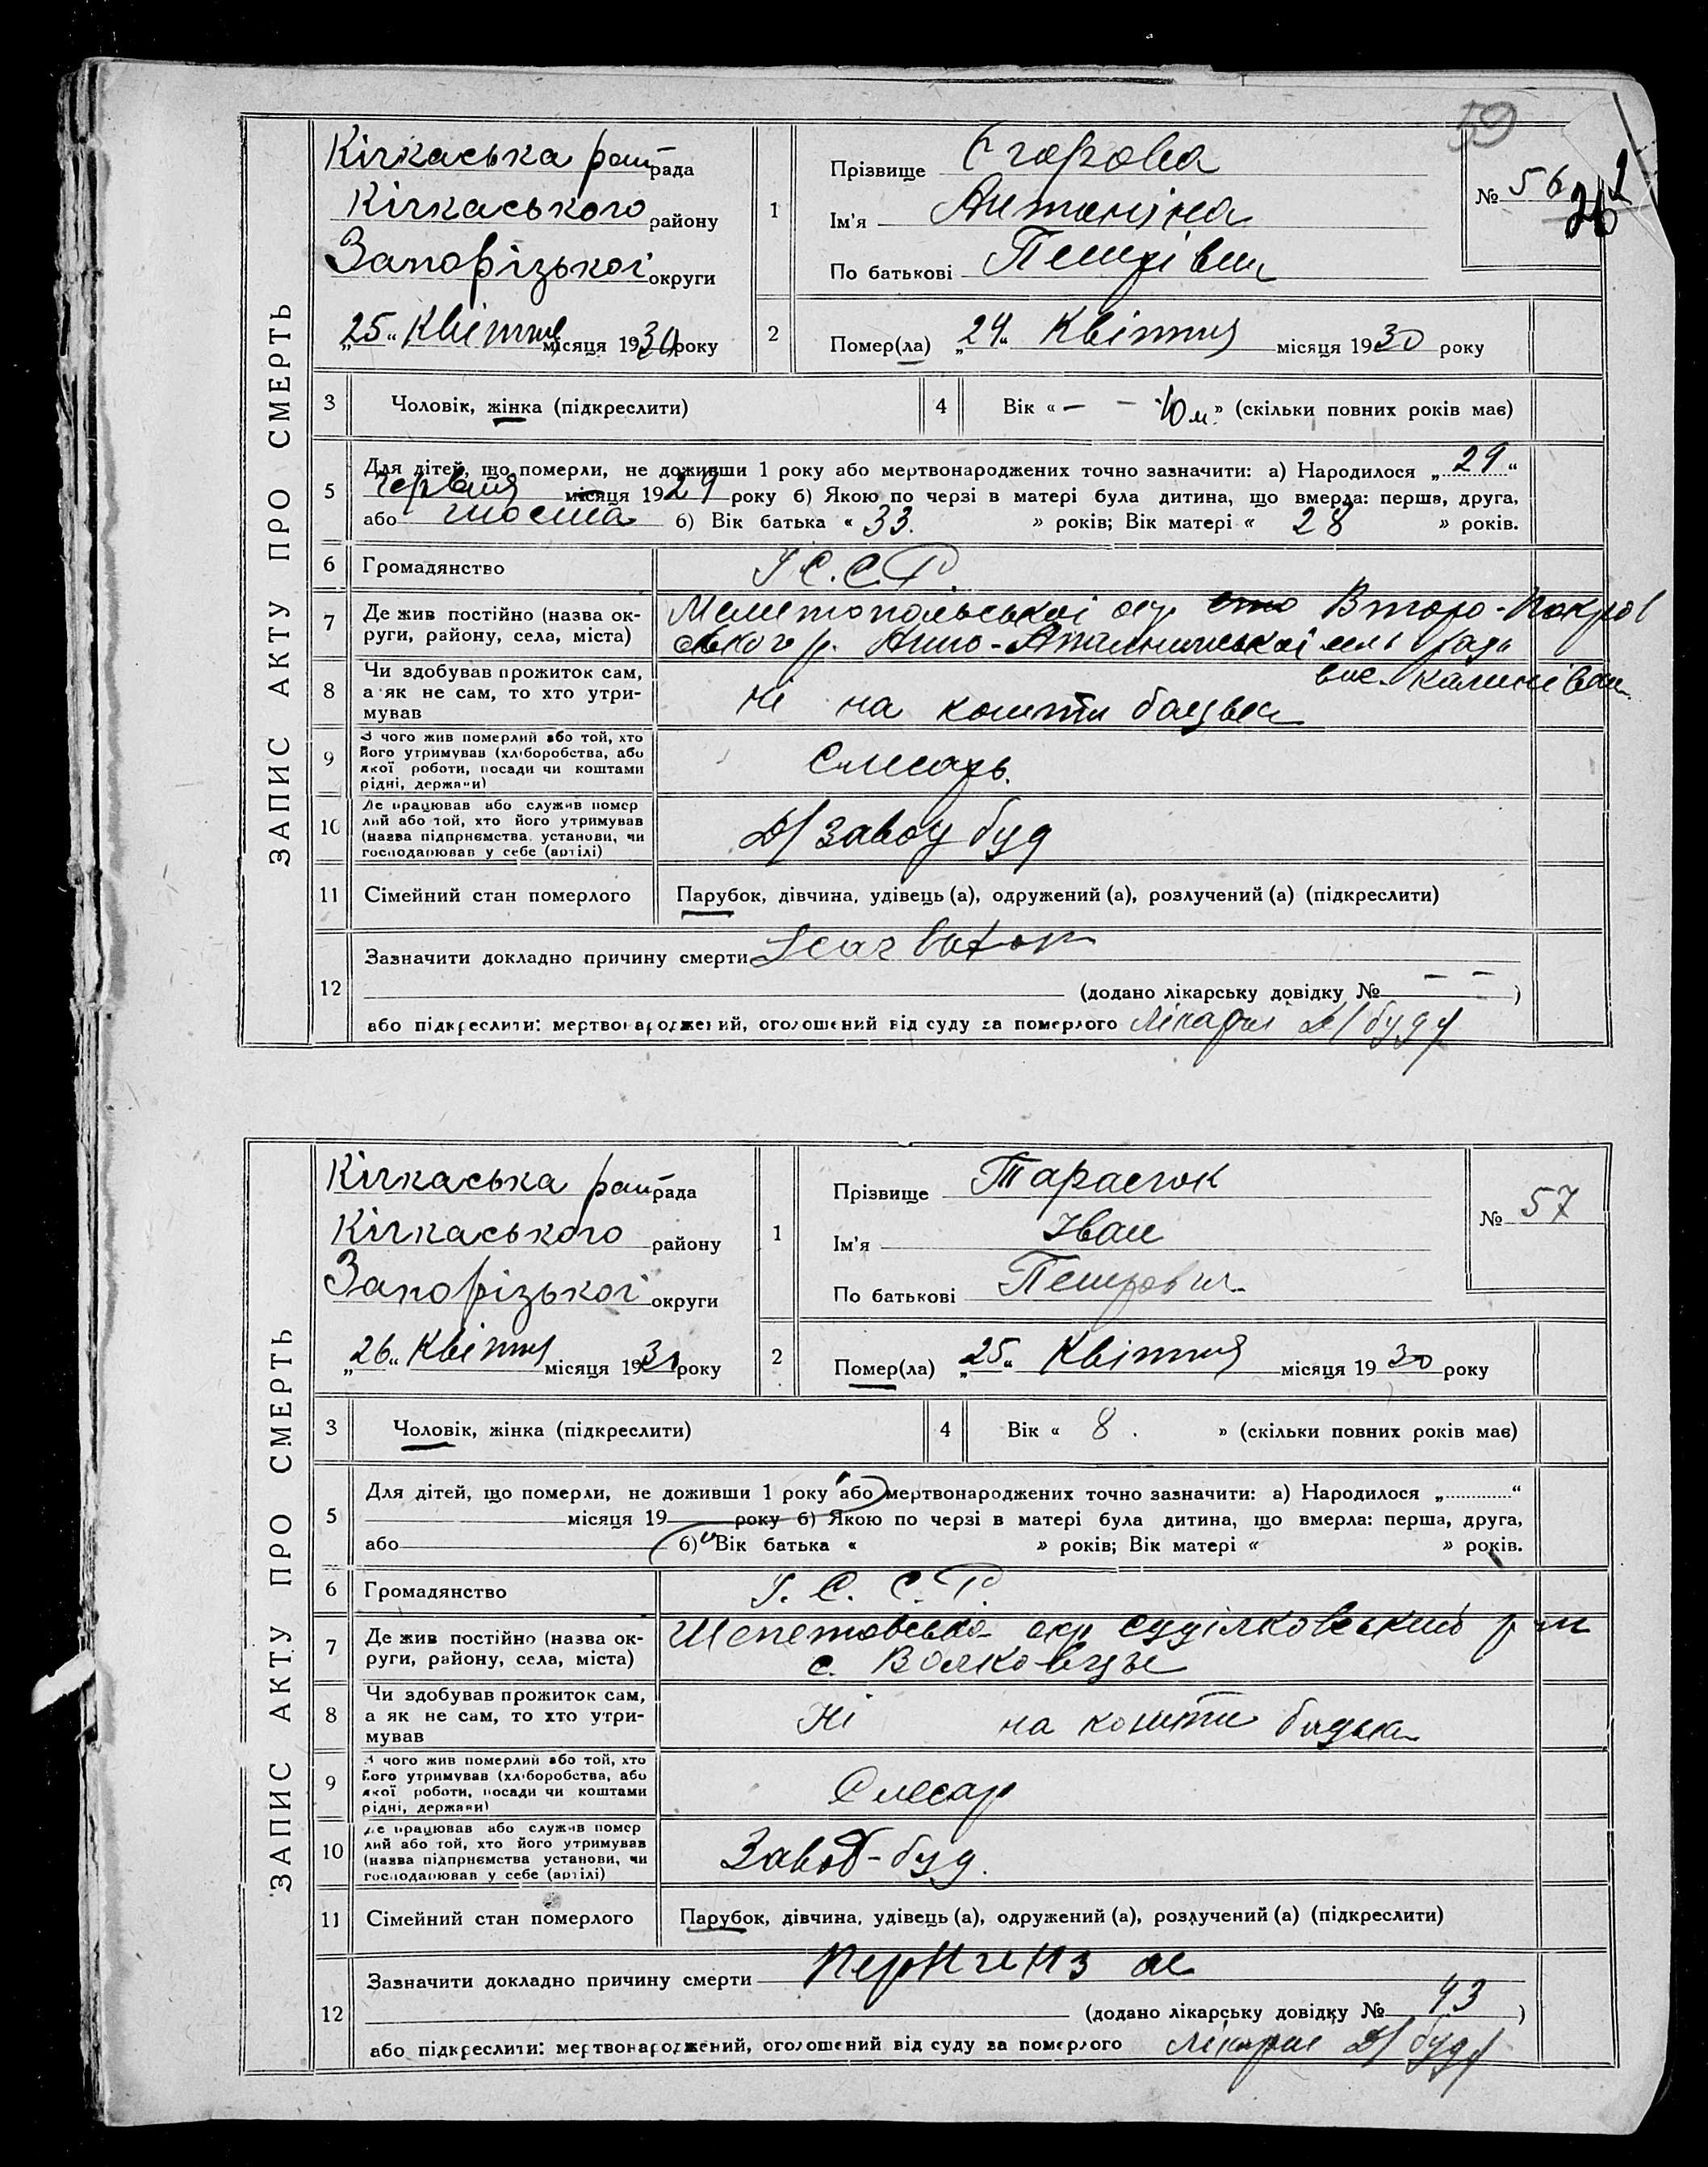 59
ЗАПИС АКТУ ПРО СМЕРТЬ
Кічкаська рай рада
Кічкаського району
Запорізької округи
„25“ Квітня місяця 1930 року
1
Прізвище Єгорова
Ім'я Антоніна
По батькові Петрівна
№ 56
2
Помер(ла) „24“ Квітня місяця 1930 року
3
Чоловік, жінка (підкреслити)
4
Вік « — — 10 м. » (скільки повних років має)
5
Для дітей, що померли, не доживши 1 року або мертвонароджених точно зазначити: а) Народилося „29“
червня місяця 1929 року б) Якою по черзі в матері була дитина, що вмерла: перша, друга,
або шоста б) Вік батька « 33. » років; Вік матері « 28 » років.
6
Громадянство
У.С.С.Р.
7
Де жив постійно (назва ок-
руги, району, села, міста)
Мелитопольської окр. Второ-Покров
ського р. сель ради
вис.
8
Чи здобував прожиток сам,
а як не сам, то хто утри-
мував
Ні на кошти батька
9
З чого жив померлий або той, хто
його утримував (хліборобства, або
якої роботи, посади чи коштами
рідні, держави)
Слюсарь.
10
Де працював або служив помер
лий або той, хто його утримував
(назва підприємства, установи, чи
господарював у себе (артілі)
Д/Заводбуд
11
Сімейний стан померлого
Парубок, дівчина, удівець (а), одружений (а), розлучений (а) (підкреслити)
12
Зазначити докладно причину смерти
(додано лікарську довідку № — — )
або підкреслити: мертвонароджений, оголошений від суду за померлого Лікарня Д/буду
ЗАПИС АКТУ ПРО СМЕРТЬ
Кічкаська рай рада
Кічкаського району
Запорізької округи
„26“ Квітня місяця 1930 року
1
Прізвище Тарасюк
Ім'я Іван
По батькові Петрович
№ 57
2
Помер(ла) „25“ Квітня місяця 1930 року
3
Чоловік, жінка (підкреслити)
4
Вік « 8. » (скільки повних років має)
5
Для дітей, що померли, не доживши 1 року або мертвонароджених точно зазначити: а) Народилося „ “
місяця 19 року б) Якою по черзі в матері була дитина, що вмерла: перша, друга,
або б) Вік батька « » років; Вік матері « » років.
6
Громадянство
У.С.С.Р.
7
Де жив постійно (назва ок-
руги, району, села, міста)
Шепетовська окр Суділковський р-н
с. Волковцы
8
Чи здобував прожиток сам,
а як не сам, то хто утри-
мував
Ні на кошти батька
9
З чого жив померлий або той, хто
його утримував (хліборобства, або
якої роботи, посади чи коштами
рідні, держави)
Слюсар
10
Де працював або служив помер
лий або той, хто його утримував
(назва підприємства установи, чи
господарював у себе (артілі)
Завод-буд.
11
Сімейний стан померлого
Парубок, дівчина, удівець (а), одружений (а), розлучений (а) (підкреслити)
12
Зазначити докладно причину смерти
(додано лікарську довідку № 43 )
або підкреслити: мертвонароджений, оголошений від суду за померлого Лікарня Д/буду